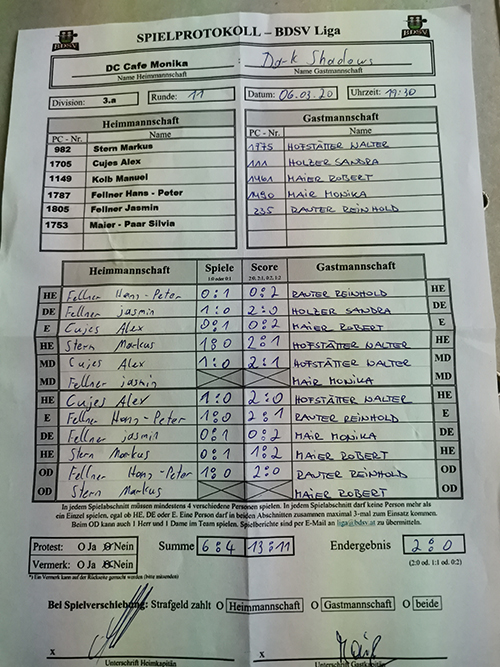 BDSV
SPIELPROTOKOLL – BDSV Liga
BDSV
DC Cafe Monika : Dark Shadows
Name Heimmannschaft Name Gastmannschaft
Division: 3.a Runde: 11 Datum: 06.03.20 Uhrzeit: 19:30
Heimmannschaft Gastmannschaft
PC - Nr. Name PC - Nr. Name
982 Stern Markus 1775 HOFSTÄTTER WALTER
1705 Cujes Alex 111 HOLZER SANDRA
1149 Kolb Manuel 1461 MAIER ROBERT
1787 Fellner Hans - Peter 1490 MAIR MONIKA
1805 Fellner Jasmin 235 RAUTER REINHOLD
1753 Maier - Paar Silvia
Heimmannschaft Spiele Score Gastmannschaft
1:0 oder 0:1 2:0, 2:1, 0:2, 1:2
HE Fellner Hans-Peter 0:1 0:2 RAUTER REINHOLD HE
DE Fellner jasmin 1:0 2:0 HOLZER SANDRA DE
E Cujes Alex 0:1 0:2 MAIER ROBERT E
HE Stern Markus 1:0 2:1 HOFSTÄTTER WALTER HE
MD Cujes Alex 1:0 2:1 HOFSTÄTTER WALTER MD
MD Fellner jasmin MAIR MONIKA MD
HE Cujes Alex 1:0 2:0 HOFSTÄTTER WALTER HE
E Fellner Hans-Peter 1:0 2:1 RAUTER REINHOLD E
DE Fellner jasmin 0:1 0:2 MAIR MONIKA DE
HE Stern Markus 0:1 1:2 MAIER ROBERT HE
OD Fellner Hans-Peter 1:0 2:0 RAUTER REINHOLD OD
OD Stern Markus MAIER ROBERT OD
In jedem Spielabschnitt müssen mindestens 4 verschiedene Personen spielen. In jedem Spielabschnitt darf keine Person mehr als
ein Einzel spielen, egal ob HE, DE oder E. Eine Person darf in beiden Abschnitten zusammen maximal 3-mal zum Einsatz kommen.
Beim OD kann auch 1 Herr und 1 Dame im Team spielen. Spielberichte sind per E-Mail an liga@bdsv.at zu übermitteln.
Protest: O Ja O Nein Summe 6:4 13:11 Endergebnis 2:0
Vermerk: O Ja O Nein (2:0 od. 1:1 od. 0:2)
*) Ein Vermerk kann auf der Rückseite gemacht werden (bitte ankreuzen)
Bei Spielverschiebung: Strafgeld zahlt O Heimmannschaft O Gastmannschaft O beide
x x
Unterschrift Heimkapitän Unterschrift Gastkapitän